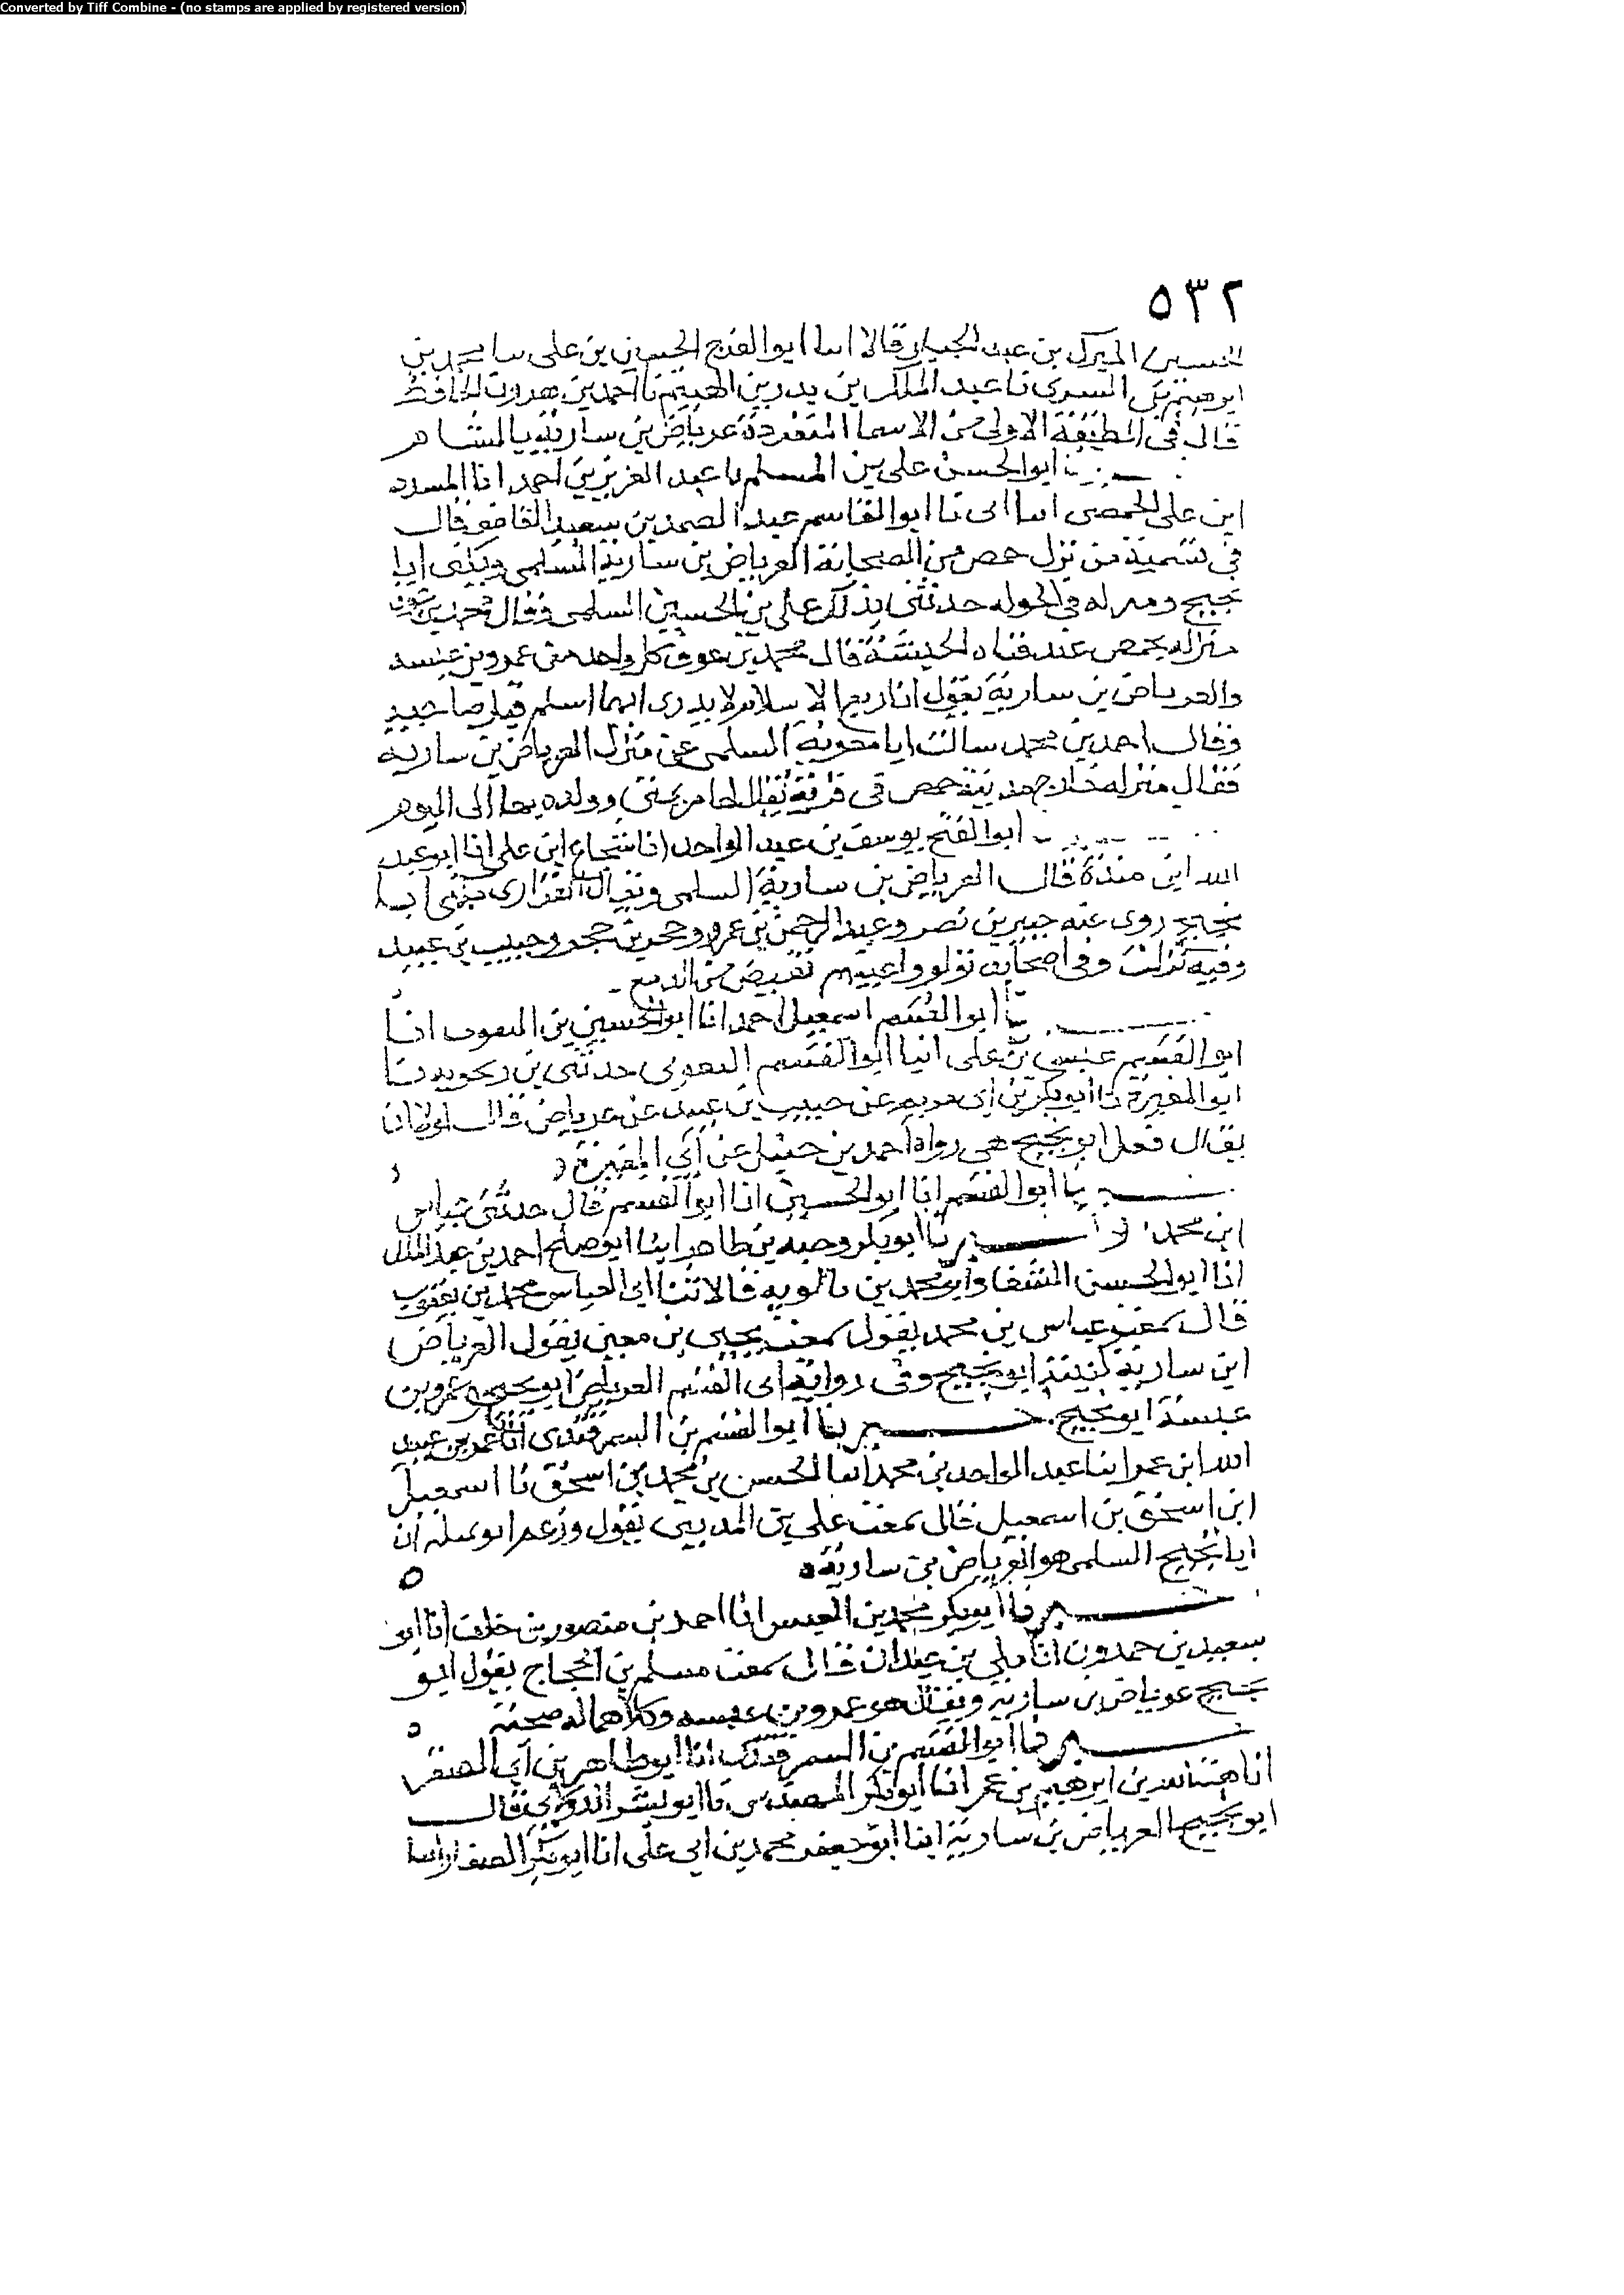 Converted by Tiff Combine - (no stamps are applied by registered version)
٥٣٢
الحسين المبرك بن عبد الجبار قالا انبا ابو الفرج الحسين بن علي بن
ابرهيم بن السري نا عبد الملك بن بدر بن الهيثم نا احمد بن هرون الحافظ
قال في الطبقة الاولى من الاسما المنفردة عرباض بن سارية بالشام
نا ابو الحسن علي بن المسلم نا عبد العزيز بن احمد انا المسدد
ابن علي الحمصي انبا ابي نا ابو القاسم عبد الصمد بن سعيد القاضي قال
في تسمية من نزل حمص من الصحابة العرباض بن سارية السلمي ويكنى ابا
نجيح ومنزله في الحوله حدثني بذلك علي بن الحسين السلمي وقال محمد بن عوف
منزله بحمص عند قناة الحبشة قال محمد بن عوف كل واحد من عمرو بن عبسة
والعرباض بن سارية يقول انا ربع الاسلام لا يدرى ايهما اسلم قبل صاحبه
وقال احمد بن محمد سالت ابا معوية السلمي عن منزل العرباض بن سارية
فقال منزله خارج مدينة حمص في قرية يقال لها مريمين وولده بها الى اليوم
ابو الفتح يوسف بن عبد الواحد انا شجاع ابن علي انا ابو عبد
الله ابن مندة قال العرباض بن سارية السلمي ويقال الفزاري يكنى ابا
نجيح روى عنه جبير بن نصر وعبد الرحمن بن عمرو وحجر بن حجر وحبيب بن عبيد
وفيه نزلت وفي اصحابه تولوا واعينهم تفيض من الدمع
نا ابو القسم اسمعيل احمد انا ابو الحسين بن النقور انا
ابو القسم عيسى بن علي انبا ابو القسم البغوي حدثني بن زنجويه نا
ابو المغيرة نا ابو بكر بن ابي مريم عن حبيب بن عبيد عن عرباض قال لولا ان
يقال فعل ابو نجيح رواه احمد بن حنبل عن ابي المغيرة
نا ابو القسم انا ابو الحسين انا ابو القسم قال حدثني عباس
ابن محمد نا ابو بكر وجيه بن طاهر انبا ابو صلح احمد بن عبد الملك
انا ابو الحسن السقا وابو محمد بن بالويه قالا ثنا ابو العباس محمد بن يعقوب
قال سمعت عباس بن محمد يقول سمعت يحيى بن معين يقول العرباض
ابن سارية كنيته ابو نجيح وفي رواية ابي القسم العرباض ابو نجيح وعمرو بن
عبسة ابو نجيح نا ابو القسم بن السمرقندي انا عمر بن عبيد
الله ابن عمر انبا عبد الواحد بن محمد انبا الحسن بن محمد بن اسحق نا اسمعيل
ابن اسحق بن اسمعيل قال سمعت علي بن المديني يقول وزعم ابو نميلة ان
ابا نجيح السلمي هو العرباض بن سارية
نا ابو بكر محمد بن العباس انا احمد بن منصور بن خلف انا ابو
سعيد بن حمدون انا مكي بن عبدان قال سمعت مسلم بن الحجاج يقول ابو
نجيح عرباض بن سارية ويقال هو عمرو بن عبسة وكلاهما له صحبة
نا ابو القسم بن السمرقندي انا ابو طاهر بن ابي الصقر
انا هبة الله بن ابرهيم بن عمر انبا ابو بكر المهندس نا ابو بشر الدولابي قال
ابو نجيح العرباض بن سارية انبا ابو جعفر محمد بن ابي علي انا ابو بكر الصفار انبا